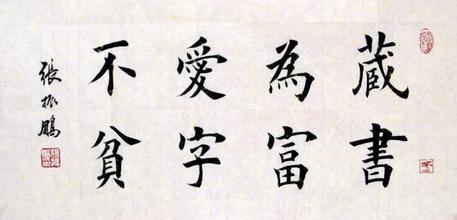 藏書
為富
愛字
不貧
張振鵬